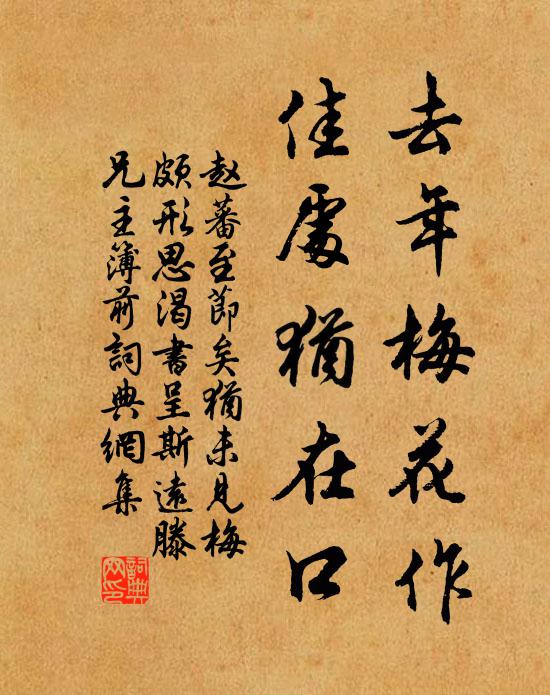 去年梅花作
佳處猶在口
赵蕃至節矣猶未見梅
頗形思渴書呈斯遠滕
兄主簿前詞典網集
詞典网印